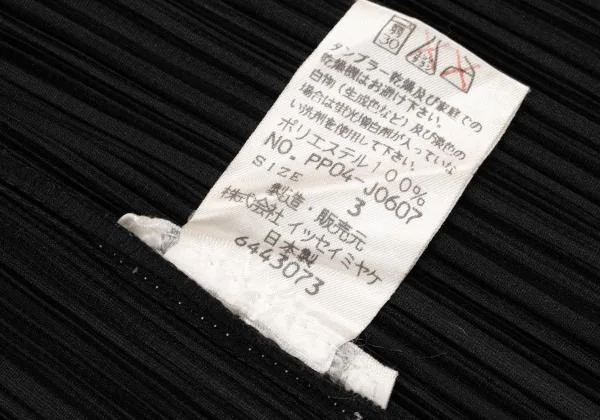 弱
30
エンソ
サラシ
タンブラー乾燥及び家庭での
乾燥機はお避け下さい。
白物（生成色など）及び淡色の
場合は蛍光増白剤が入っていな
い洗剤を使用して下さい。
ポリエステル100%
NO. PP04-J0607
SIZE 3
製造・販売元
株式会社 イッセイミヤケ
日本製
6443073